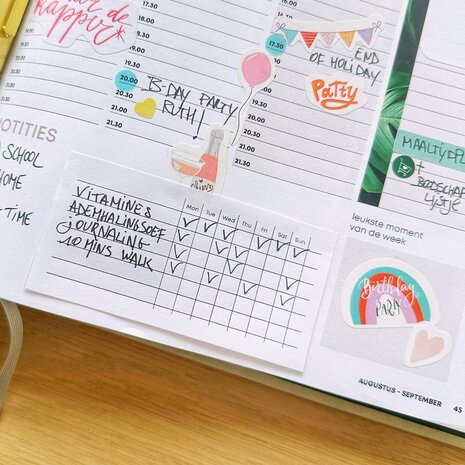 happy
17.30
18.30
19.00
19.30
20.00
20.30
21.00
21.30
B-DAY PARTY
RUTH!
17.30
20.30
21.00
21.30
END
OF HOLIDAY
PARTY
MAALTIJD
+
BOODSCHAP
LIJSTJE
NOTITIES
SCHOOL
HOME
-TIME
Mon Tue Wed Thu Fri Sat Sun
VITAMINES
ADEMHALINGSOEF
JOURNALING
10 MINS WALK
leukste moment
van de week
Birthday
PARTY
AUGUSTUS - SEPTEMBER 45